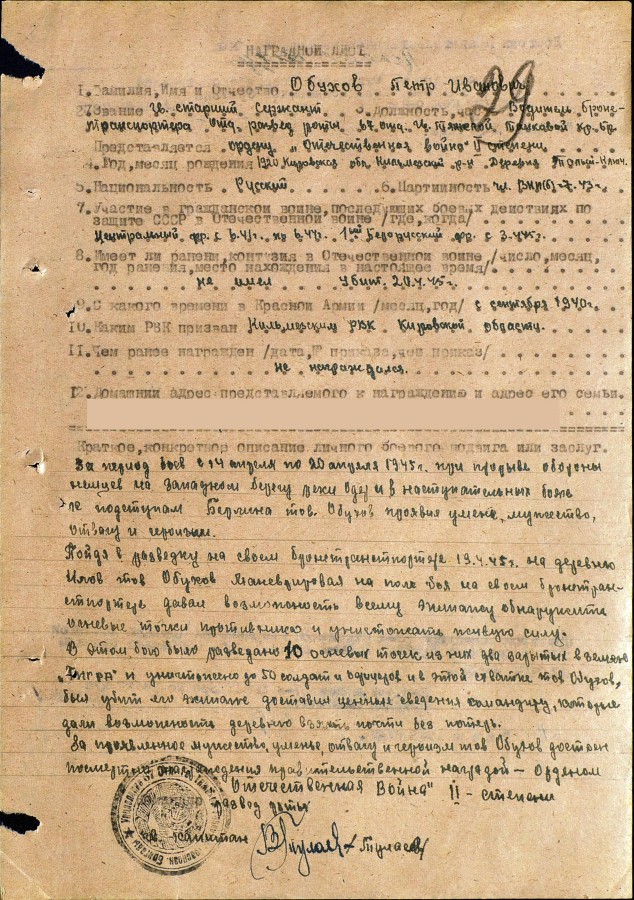 НАГРАДНОЙ ЛИСТ
29
1. Фамилия, Имя и Отчество Обухов Петр Иванович
2. Звание Гв. старший сержант 3. Должность, часть Водитель броне-
транспортера отд. развед роты 67 отд. Гв. Тяжелой танковой кр. бр.
Представляется ордену „Отечественная война" II степени
4. Год, месяц рождения 1920 Кировская обл. Кильмезский р-н Деревня Топый-Ключ.
5. Национальность Русский 6. Партийность чл. ВКП(б)-7.43г
7. Участие в гражданской войне, последующих боевых действиях по
защите СССР в Отечественной войне /где, когда/
Центральный фр. с 6.41г. по 6.42г. 1ый Белорусский фр. с 3.4.45г.
8. Имеет ли ранени, контузия в Отечественной войне /число, месяц,
год ранения, место нахождения в настоящее время/
не имел Убит 20.4.45г.
9. С какого времени в Красной Армии /месяц, год/ с сентября 1940г.
10. Каким РВК призван Кильмезским РВК Кировской области.
11. Чем ранее награжден /дата, № приказа, чей приказ/
не награждался.
12. Домашний адрес представляемого к награждению и адрес его семьи.
Краткое, конкретное описание личного боевого подвига или заслуг.
За период боев с 14 апреля по 20 апреля 1945г. при прорыве обороны
немцев на западном берегу реки Одер и в наступательных боях
к подступам Берлина тов. Обухов проявил умение, мужество,
отвагу и героизм.
Пойдя в разведку на своем бронетранспортере 19.4.45г. на деревню
Илов тов Обухов маневрировая на поле боя на своем бронетран-
спортере давал возможность всему экипажу обнаружить
огневые точки противника и уничтожать живую силу.
В этом бою было разведано 10 огневых точек из них два зарытых в землю
„Тигра" и уничтожено до 50 солдат и офицеров и в этой схватке тов Обухов,
был убит его экипаж доставил ценные сведения командиру, которые
дали возможность деревню взять почти без потерь.
За проявленное мужество, уменье, отвагу и героизм тов Обухов достоен
посмертно награждения правительственной наградой — Орденом
„Отечественная Война" II - степени
развед роты
гв. капитан /Тулаев/